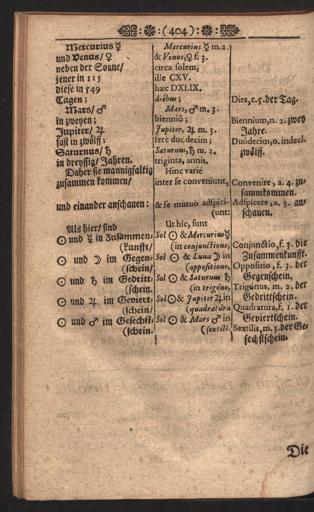 (404)
Mercurius ☿
und Venus/ ♀
neben der Sonne/
jener in 115
diese in 549
Tagen;
Mars/ ♂
in zweyen;
Jupiter/ ♃
fast in zwölff;
Saturnus/ ♄
in dreyssig/ Jahren.
Daher sie mannigfaltig
zusammen kommen/
und einander anschauen:
Als hier/ sind
☉ und ☿ in Zusammen-
(kunfft/
☉ und ☽ im Gegen-
(schein/
☉ und ♄ im Gedritt-
(schein.
☉ und ♃ im Geviert-
(schein/
☉ und ♂ im Gesechst-
(schein.
Mercurius ☿ m. 2.
& Venus, ♀ f. 3.
circa solem;
ille CXV.
hæc DXLIX.
diebus;
Mars, ♂ m. 3.
bienniô;
Jupiter, ♃ m. 3.
ferè duodecim;
Saturnus, ♄ m. 2.
triginta, annis.
Hinc variè
inter se conveniunt,
& se mutuo adspici-
(unt:
Ut hîc, sunt
Sol ☉ & Mercurius ☿
(in conjunctione,
Sol ☉ & Luna ☽ in
(oppositione,
Sol ☉ & Saturnus ♄
(in trigôno,
Sol ☉ & Jupiter ♃ in
(quadratûra
Sol ☉ & Mars ♂ in
(sextili.
Dies, c. 5. der Tag.
Biennium, n. 2. zwey
Jahre.
Duôdecim, o. indecl.
zwölff.
Convenire, a. 4. zu-
sammkommen.
Adspicere, a. 3. an-
schauen.
Conjunctio, f. 3. die
Zusammenkunfft.
Oppositio, f. 3. der
Gegenschein.
Trigônus, m. 2. der
Gedrittschein.
Quadratura, f. 1. der
Geviertschein.
Sextilis, m. 3. der Ge-
sechstschein.
Die